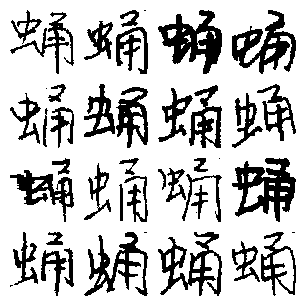 蛹蛹蛹蛹
蛹蛹蛹蛹
蛹蛹蛹蛹
蛹蛹蛹蛹